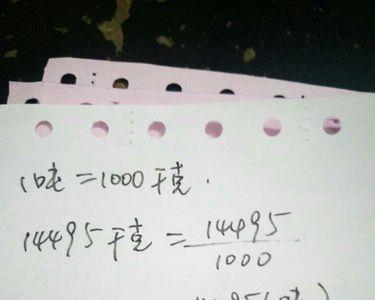 1吨=1000千克.
14495千克=14495/1000